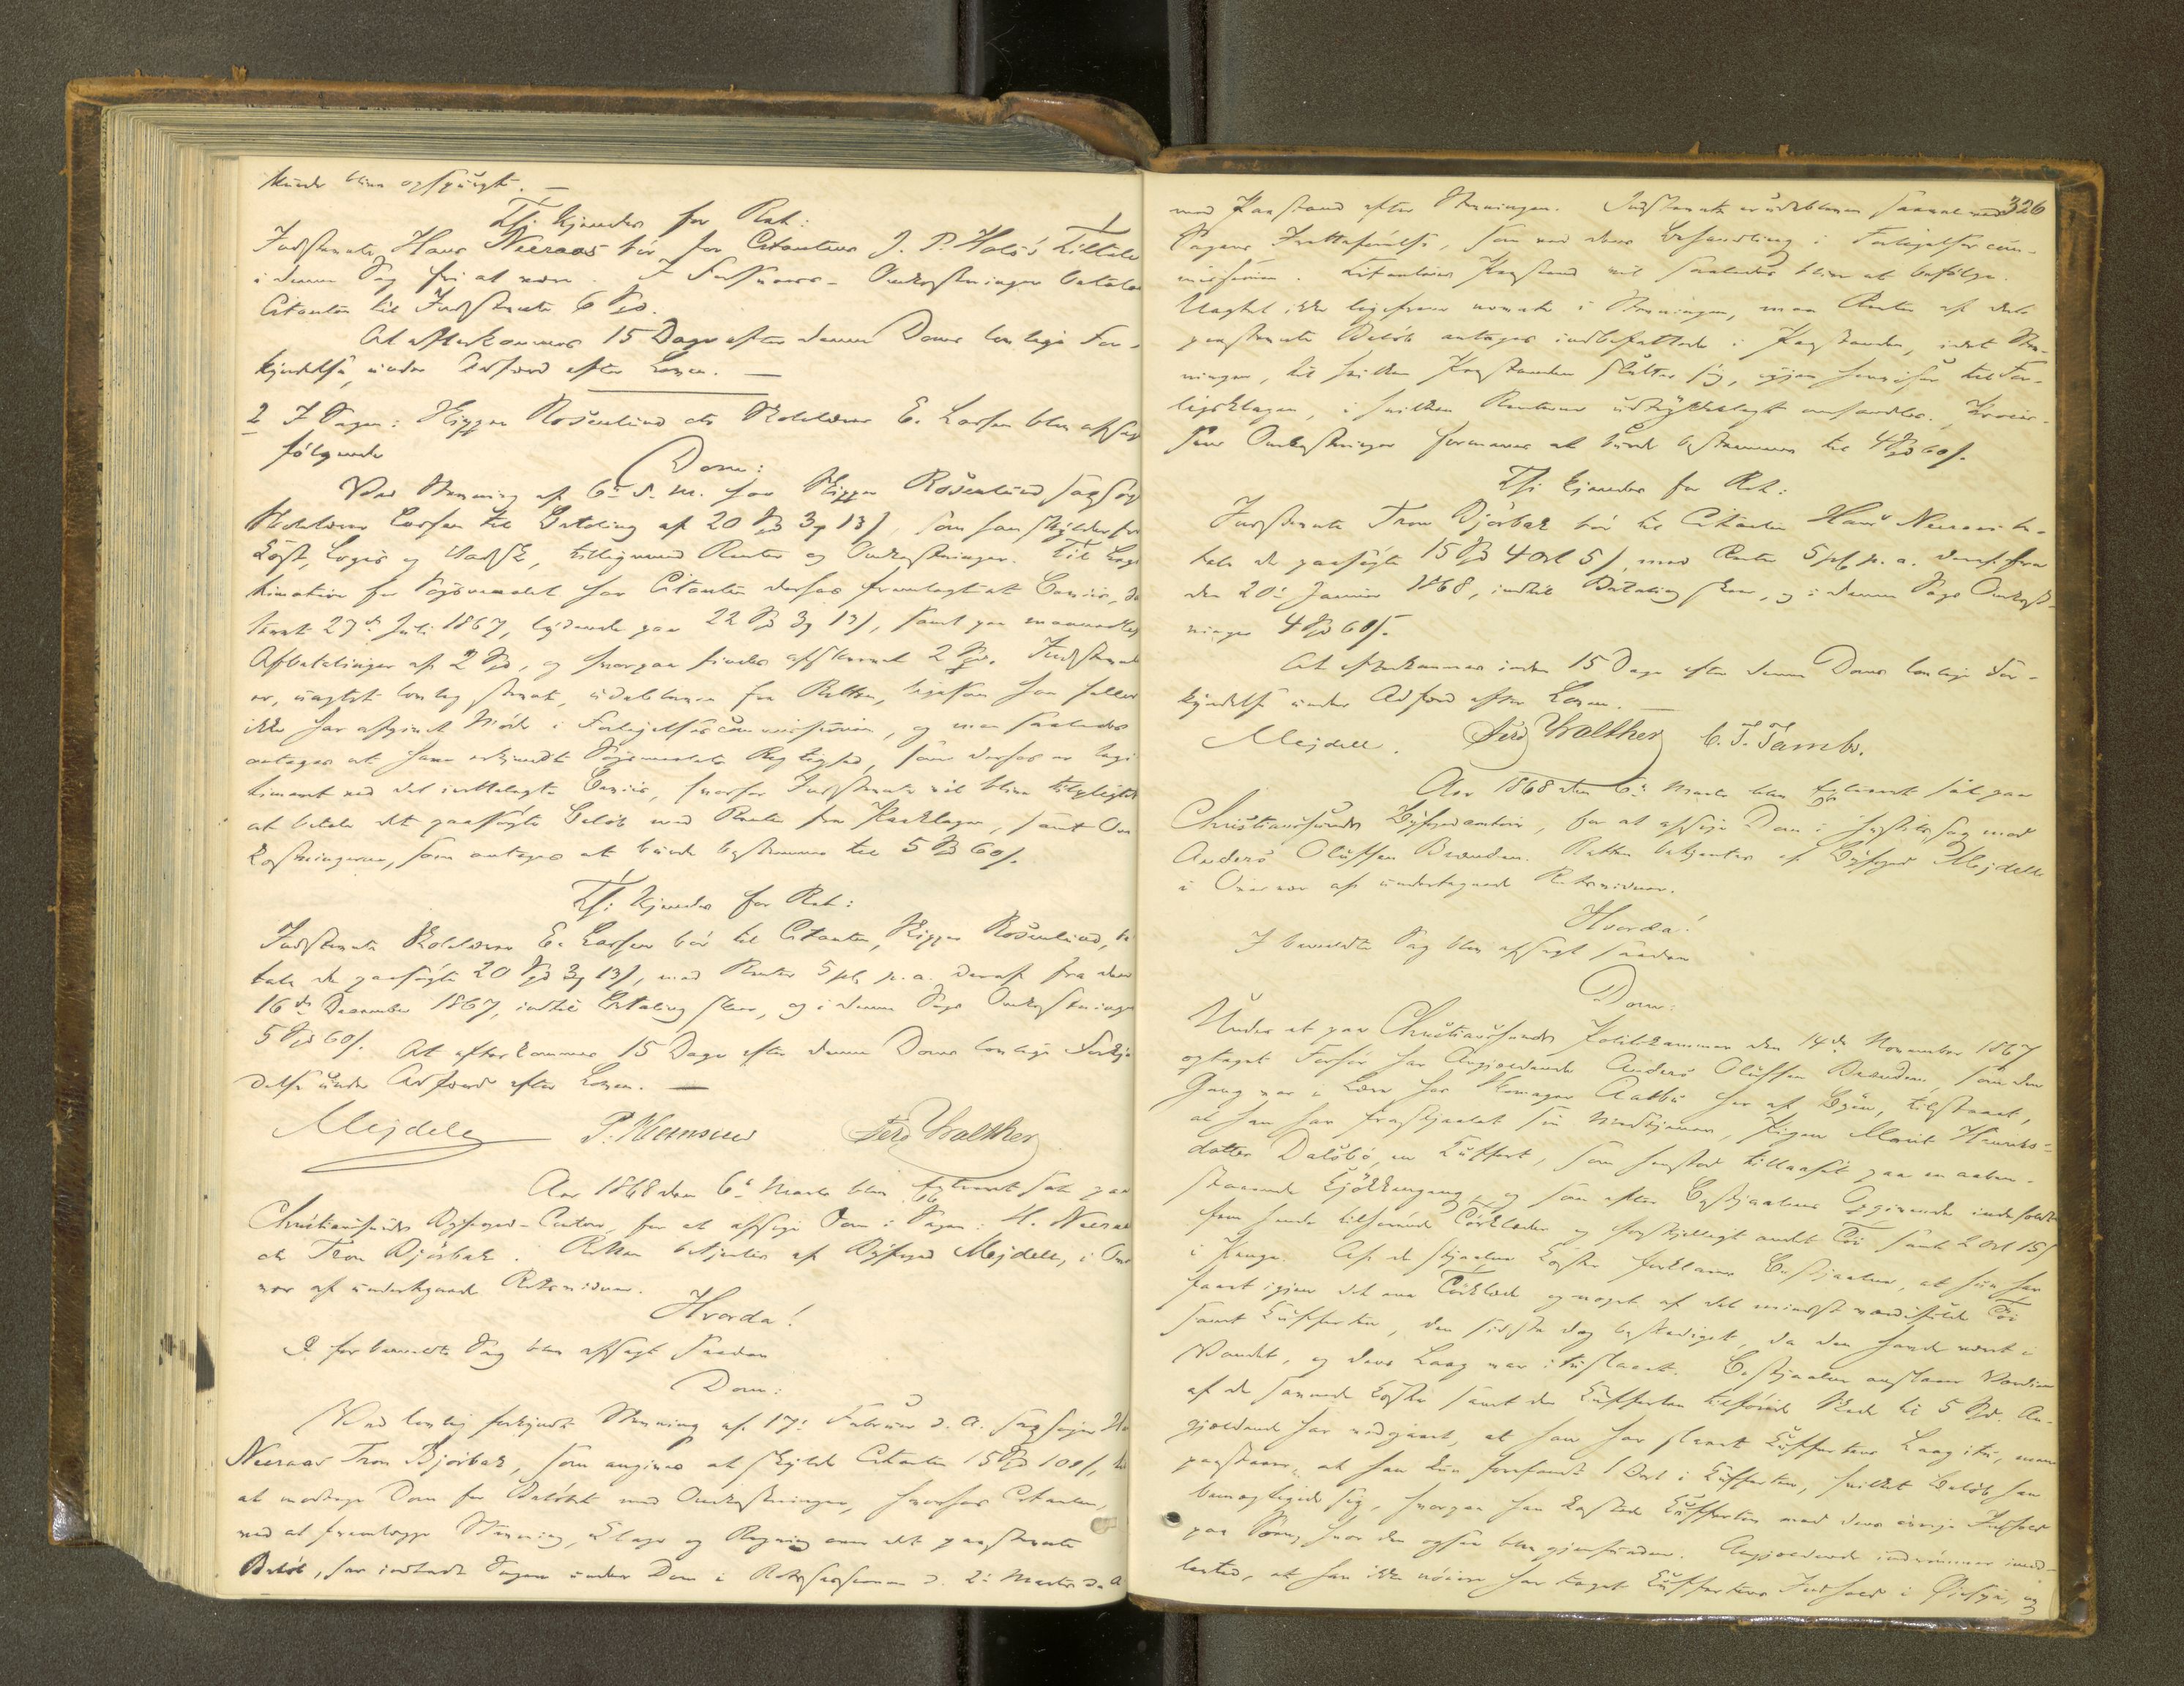 kunde blive opspurgt. —
Thi kjendes for Ret:
Indstevnte Hans Neeraas bør for Citantens J. P. Holø's Tiltale
i denne Sag fri at være. I Sagsomkostninger betaler
Citanten til Indstevnte 6 Spd.
At efterkommes 15 Dage efter denne Doms lovlige For-
kyndelse, under Adfærd efter Loven. —
2 I Sagen: Skipper Rosenlund ctr Kobberslager E. Larsen blev afsagt
følgende
Dom:
Ved Stevning af 6te d. M. har Skipper Rosenlund sagsøgt
Larsen til Betaling af 20 Spd 3 13 s, som han skylder for
Kost, Logis og Vadsk, tilligemed Renter og Omkostninger. Til Legi-
timation for Søgsmaalet har Citanten derfor fremlagt et Beviis, da-
teret 27de Juli 1867, lydende paa 22 Spd 3 13 s, samt paa maanedlige
Afbetalinger af 2 Spd, og hvorpaa findes afskrevet 2 Spd. Indstevnte
er, uagtet lovlig stevnt, udebleven fra Retten, ligesom han heller
ikke har afgivet Møde i Forligelsescommissionen, og maa saaledes
antages at have erkjendt Søgsmaalets Rigtighed, som derfor er legi-
timeret ved det irettelagte Beviis, hvorfor Indstevnte vil blive tilpligtet
at betale det paasøgte Beløb med Renter fra Paaklagen, samt Om-
kostningerne, som antages at burde bestemmes til 5 Spd 60 s.
Thi kjendes for Ret:
Indstevnte E. Larsen bør til Citanten, Skipper Rosenlund, be-
tale de paasøgte 20 Spd 3 13 s, med Renter 5 pCt. p. a. deraf fra den
16de December 1867, indtil Betaling skeer, og i denne Sags Omkostninger
5 Spd 60 s.
At efterkommes 15 Dage efter denne Doms lovlige Forkyn-
delse under Adfærd efter Loven. —
Mejdell Ferd Walther
Aar 1868 den 6te Marts blev Extraret sat paa
Christianssunds Byfoged-Contor, for at afsige Dom i Sagen: H. Neeraas
ctr Tron Bjørbak. Retten betjentes af Byfoged Mejdell, i Over-
vær af undertegnede Retsvidner.
Hvorda!
I forbemeldte Sag blev afsagt saadan
Dom:
Ved lovlig forkyndt Stevning af 17de Februar d. A. sagsøger Hans
Neeraas Tron Bjørbak, som angives at skylde Citanten 15 Spd 101 s, til
at modtage Dom for Beløbet med Omkostninger, hvorfor Citanten,
ved at fremlægge Stevning, Klage og Regning over det paastevnte
Beløb, har indladt Sagen under Dom i Retssessionen d. 2de Marts d. A.
326
med Paastand efter Stevningen. Indstevnte er udebleven saavel ved
Sagens Irettførelse, som ved dens Behandling i Forligelsescom-
missionen. Citantens Paastand vil saaledes blive at befølge.
Uagtet ikke ligefrem nævnte i Stevningen, maa Renter af det
paastevnte Beløb antages indbefattede i Paastanden, idet Stev-
ningen, til hvilken Paastanden slutter sig, igjen henviser til For-
ligsklagen, i hvilken Renterne udtrykkeligt omhandles. Proces-
sens Omkostninger formenes at burde bestemmes til 4 Spd 60 s.
Thi kjendes for Ret:
Indstevnte Tron Bjørbak bør til Citanten Hans Neeraas be-
tale de paasøgte 15 Spd 4 Ort 5 s, med Renter 5 pCt. p. a. deraf fra
den 20de Januar 1868, indtil Betaling skeer, og i denne Sags Omkost-
ninger 4 Spd 60 s.
At efterkommes inden 15 Dage efter denne Doms lovlige For-
kyndelse under Adfærd efter Loven. —
Mejdell. Ferd Walther C. T. Tambs.
Aar 1868 den 6te Marts blev Extraret sat paa
Christianssunds Byfogedcontoir, for at afsige Dom i Justitssag mod
Anders Olufsen Brænden. Retten betjentes af Byfoged Mejdell
i Overvær af undertegnede Retsvidner.
Hvorda!
I bemeldte Sag blev afsagt saadan
Dom:
Under et paa Christianssunds Politikammer den 14de November 1867
optaget Forhør har Angjældende Anders Olufsen Brænden, som den
Gang var i Lære hos Skomager Aalbu her af Byen, tilstaaet,
at han har frastjaalet sin Medtjener, Pigen Marit Henriks-
datter Dalsbø, en Kuffert, som henstod tillaaset paa en aaben-
staaende Kjøkkengang, og som efter Bestjaalnes Opgivende indeholdt
fem hende tilhørende Tørklæder og forskjelligt andet Tøi samt 2 Ort 15 s
i Penge. Af de stjaalne Koster forklarer Bestjaalne, at hun har
faaet igjen det ene Tørklæde og noget af det mindst værdifulde Tøi
samt Kufferten, den sidste dog beskadiget, da den havde været i
Vandet, og dens Laag var ituslaaet. Bestjaalne anslaaer Værdien
af de savnede Koster samt den Kufferten tilføiede Skade til 5 Spd. An-
gjældende har vedgaaet, at han har slaaet Kuffertens Laag itu, men
paastaaer, at han kun forefandt 1 Ort i Kufferten, hvilket Beløb han
bemægtigede sig, hvorpaa han kastede Kufferten med dens øvrige Indhold
paa Søen, hvor den ogsaa blev gjenfunden. Angjældende indrømmer imid-
lertid, at han ikke nøiere har taget Kuffertens Indhold i Øiesyn, og